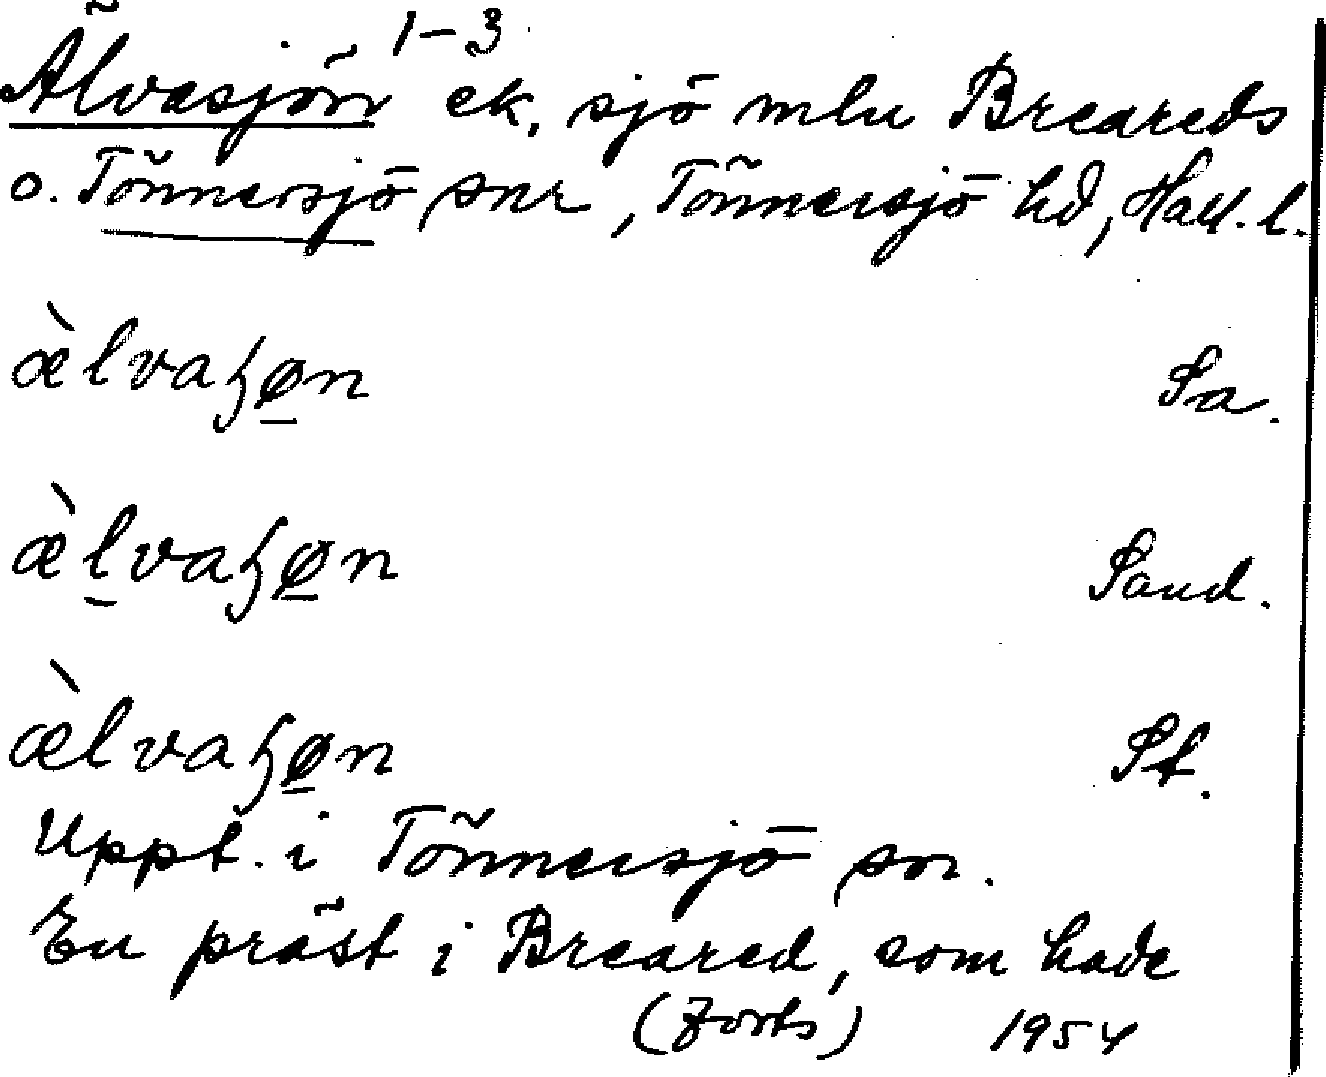 1-3
Älvasjön ek, sjö mlu Breareds
o. Tönnersjö snr, Tönnersjö hd, Hall. l.
æ̀lvaɧøn Sa.
æ̀lvaɧøn Sand.
æ̀lvaɧøn St.
Uppt. i Tönnersjö sn.
En präst i Breared, som hade
(Forts) 1954